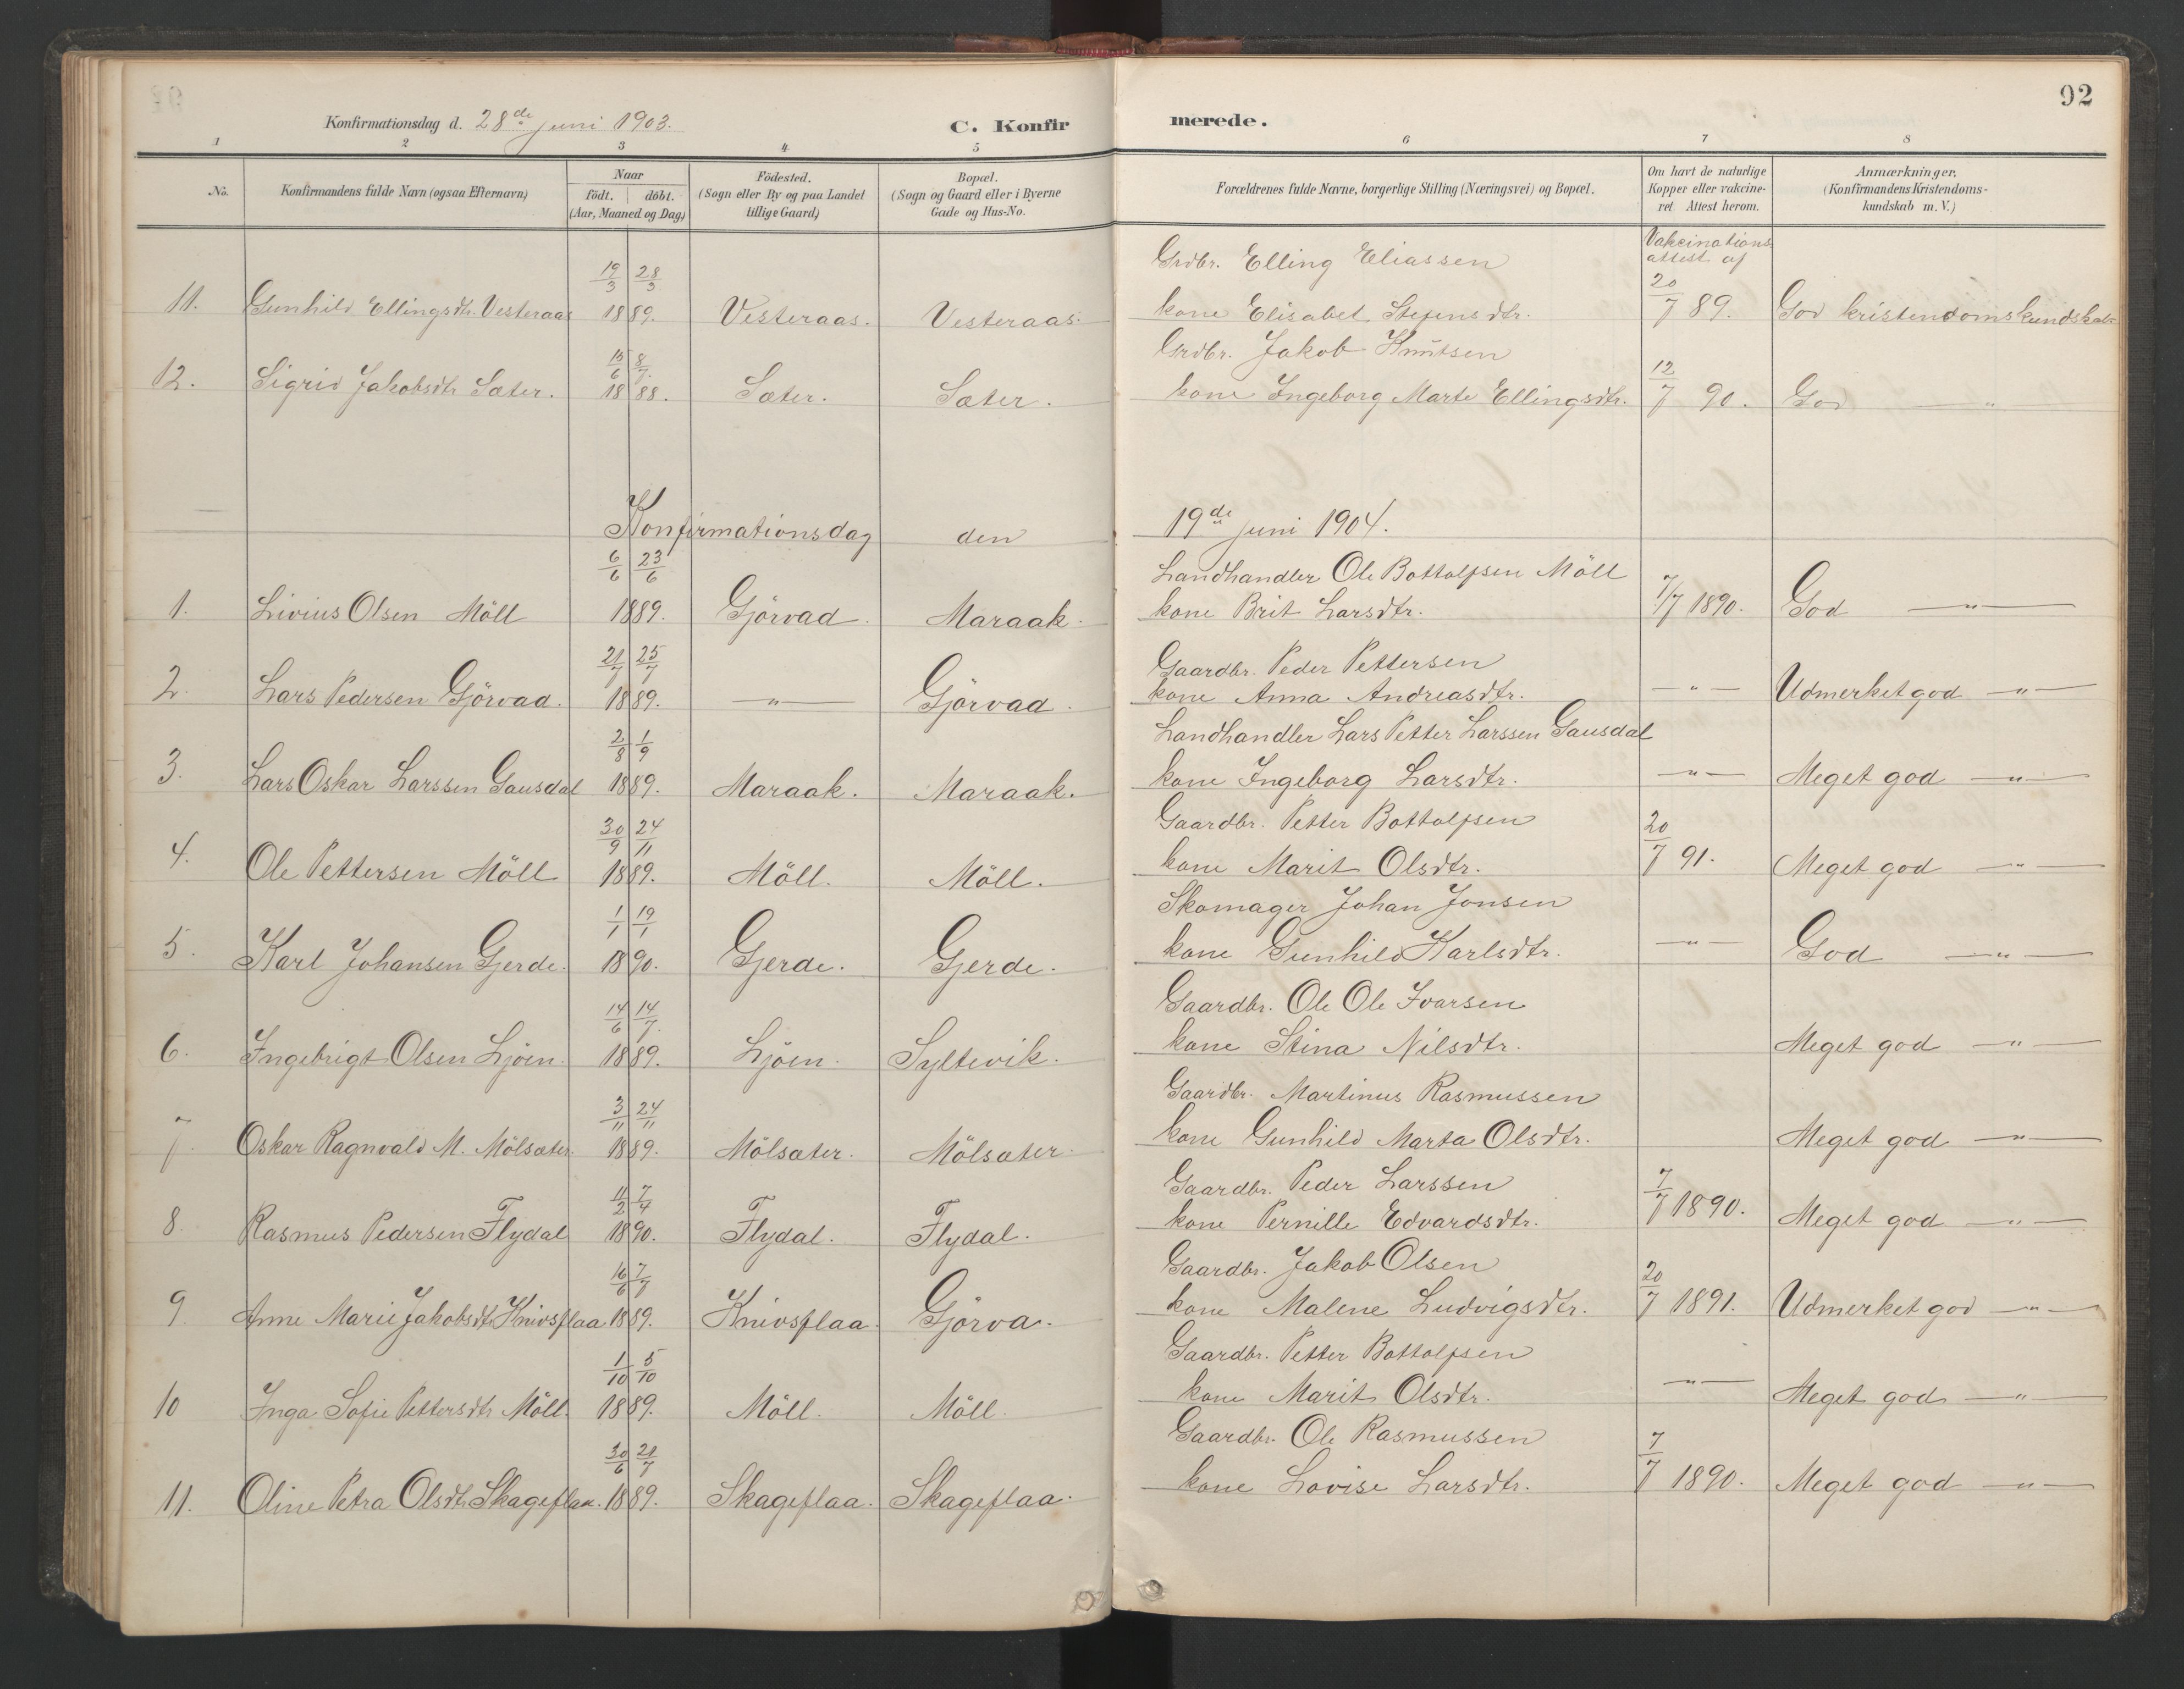 92
Konfirmationsdag d. 28de juni 1903.
C. Konfirmerede.
1 2 3 4 5 6 7 8
No.
Konfirmandens fulde Navn (ogsaa Efternavn)
Naar
födt. döbt.
(Aar, Maaned og Dag)
Födested.
(Sogn eller By og paa Landet
tillige Gaard)
Bopæl.
(Sogn og Gaard eller i Byerne
Gade og Hus-No.
Forældrenes fulde Navne, borgerlige Stilling (Næringsvei) og Bopæl.
Om havt de naturlige
Kopper eller vakcine-
ret. Attest herom.
Anmærkninger,
(Konfirmandens Kristendoms-
kundskab m. V.)
Vakcinations
attest af
19/3 28/3 Grdbr. Elling Eliassen 20/7
11. Gunhild Ellingsdtr. Vesteraas 1889. Vesteraas. Vesteraas. kone Elisabet Stefensdtr. 89. God kristendomskundskab
15/6 8/7. Grdbr. Jakob Knutsen 12/7
12. Sigrid Jakobsdtr Sæter. 1888. Sæter. Sæter. kone Ingeborg Marte Ellingsdtr. 90. God "
Konfirmationsdag den 19de juni 1904.
6/6 23/6 Landhandler Ole Bottolfsen Möll
1. Livius Olsen Möll 1889. Gjörvad. Maraak. kone Brit Larsdtr. 7/7 1890. God — " —
21/7 25/7 Gaardbr. Peder Pettersen
2. Lars Pedersen Gjörvad. 1889. — " — Gjörvad. kone Anna Andreasdtr. — " — Udmerket god — " —
2/8 1/9 Landhandler Lars Petter Larssen Gausdal
3. Lars Oskar Larssen Gausdal 1889. Maraak. Maraak. kone Ingeborg Larsdtr. — " — Meget god — " —
30/9 24/11 Gaardbr. Petter Bottolfsen 20/7
4. Ole Pettersen Möll 1889. Möll. Möll. kone Marit Olsdtr. 91. Meget god — " —
1/1 19/1 Skomager Johan Jonsen
5. Karl Johansen Gjerde. 1890. Gjerde. Gjerde. kone Gunhild Karlsdtr. — " — God — " —
14/6 14/7. Gaardbr. Ole Ole Ivarsen
6. Ingebrigt Olsen Ljöen. 1889. Ljöen. Syltevik. kone Stina Nilsdtr. Meget god — " —
3/11 24/11 Gaardbr. Martinus Rasmussen
7. Oskar Ragnvald M. Mölsæter. 1889. Mölsæter. Mölsæter. kone Gunhild Marta Olsdtr. Meget god — " —
11/2 7/4 Gaardbr. Peder Larssen 7/7
8. Rasmus Pedersen Flydal 1890. Flydal. Flydal. kone Pernille Edvardsdtr. 1890. Meget god — " —
16/6 7/7 Gaardbr. Jakob Olsen 20/7
9. Anne Marie Jakobsdtr Knivsflaa 1889. Knivsflaa. Gjörva. kone Malene Ludvigsdtr. 1891. Udmerket god — " —
1/10 5/10 Gaardbr. Petter Bottolfsen
10 Inga Sofie Pettersdtr Möll. 1889. Möll. Möll. kone Marit Olsdtr. — " — Meget god — " —
30/6 21/7 Gaardbr. Ole Rasmussen 7/7
11. Oline Petra Olsdtr Skageflaa. 1889. Skageflaa. Skageflaa. kone Lovise Larsdtr. 1890. Meget god — " —